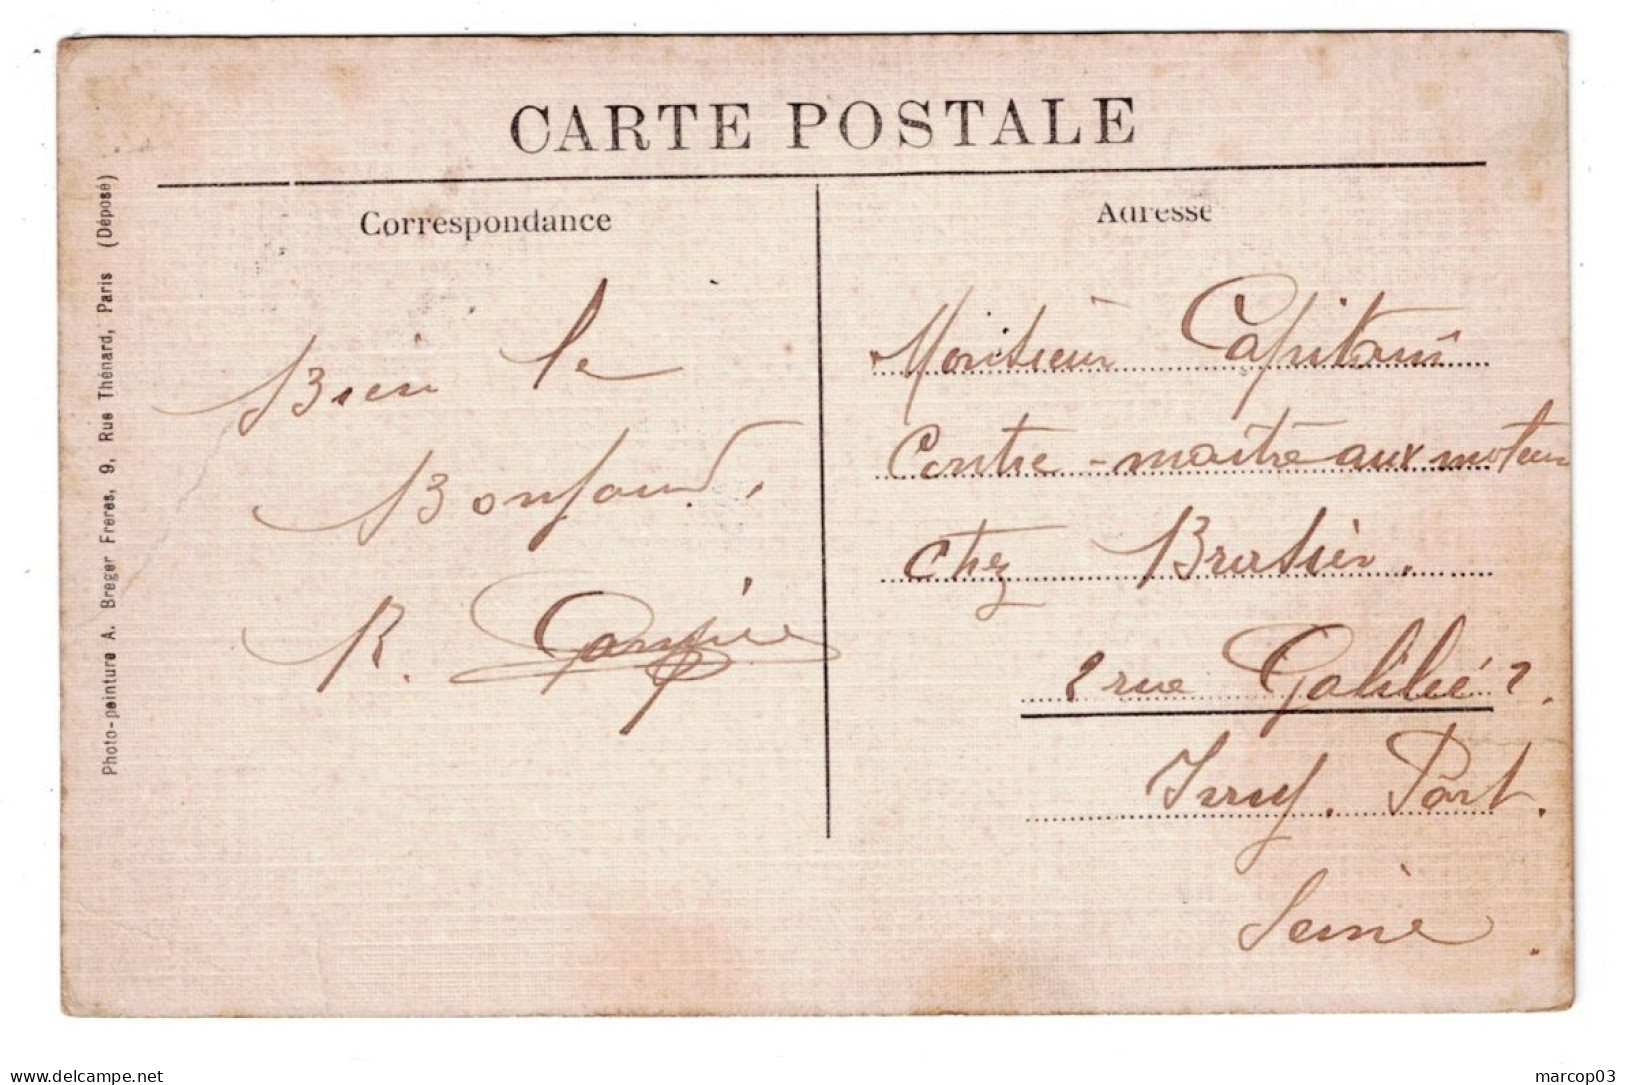 CARTE POSTALE
Correspondance
Bien le
Bonjour.
R.
Adresse
Monsieur Capitani
Contre-maitre aux moteurs
Chez Brasier.
2 rue Galilée 2.
Ivry. Port.
Seine
Photo-peinture A. Breger Frères, 9, Rue Thénard, Paris (Déposé)
delcampe.net
marcop03